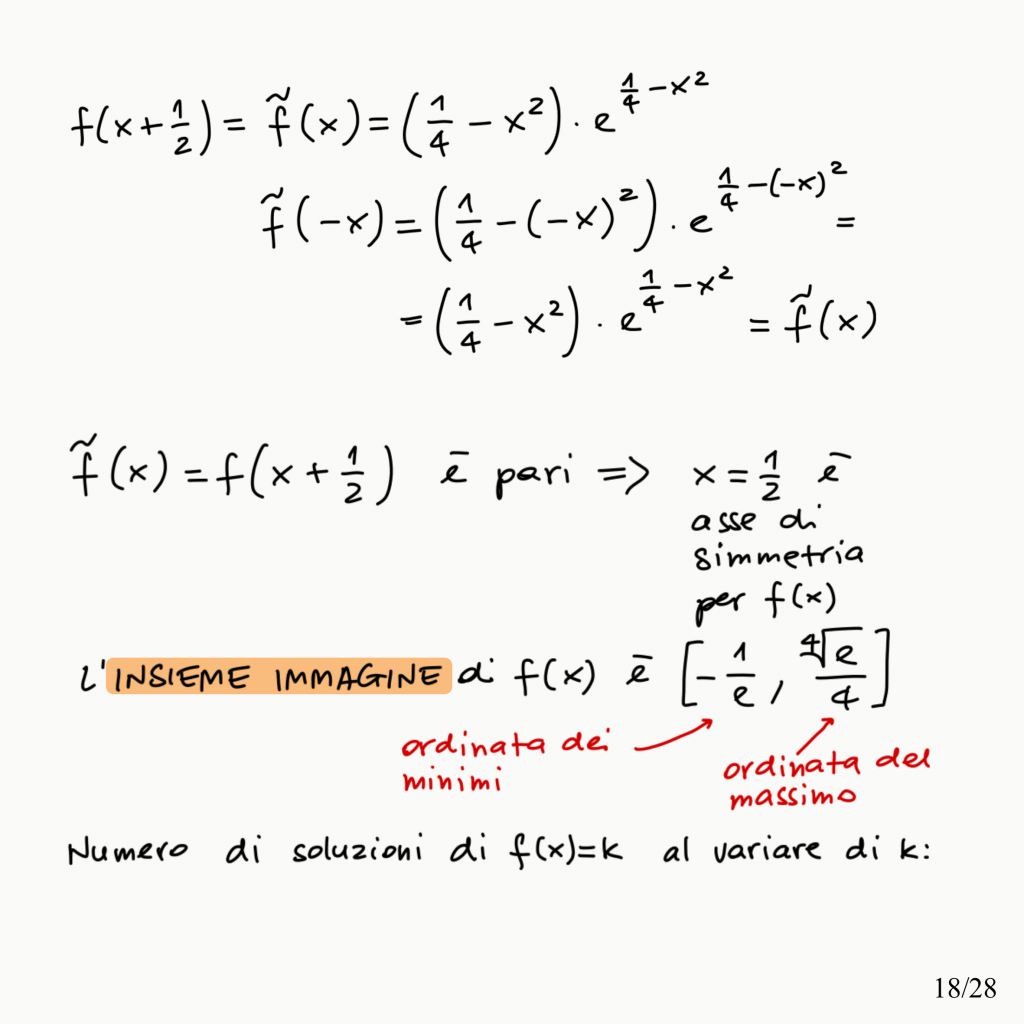 f(x+1/2) = f̃(x) = (1/4 − x²) · e^(1/4 − x²)
f̃(−x) = (1/4 − (−x)²) · e^(1/4 − (−x)²) =
= (1/4 − x²) · e^(1/4 − x²) = f̃(x)
f̃(x) = f(x + 1/2) ē pari => x = 1/2 ē
asse di
simmetria
per f(x)
L'INSIEME IMMAGINE di f(x) ē [−1/e, ∜e/4]
ordinata dei
minimi
ordinata del
massimo
Numero di soluzioni di f(x)=k al variare di k:
18/28